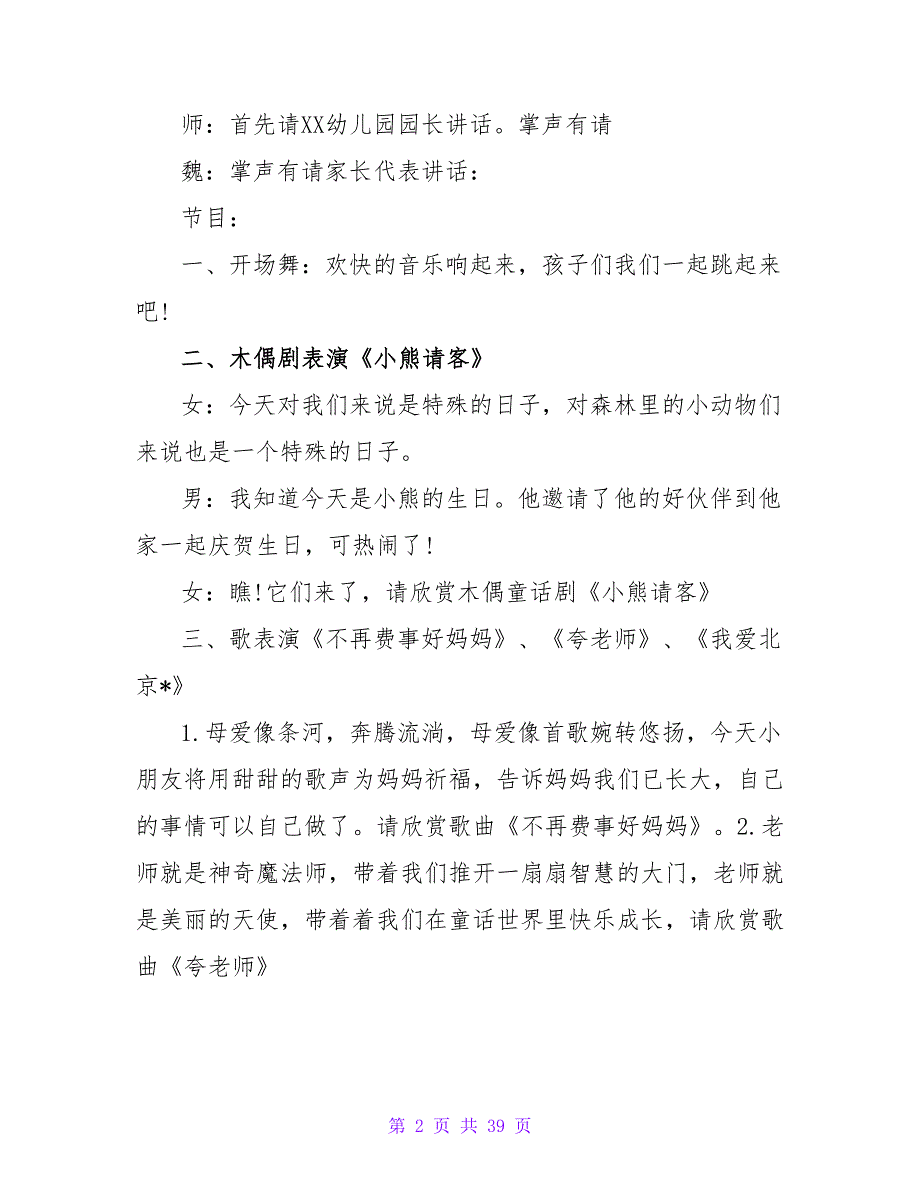 师：首先请XX幼儿园园长讲话。掌声有请
魏：掌声有请家长代表讲话：
节目：
一、开场舞：欢快的音乐响起来，孩子们我们一起跳起来
吧！
二、木偶剧表演《小熊请客》
女：今天对我们来说是特殊的日子，对森林里的小动物们
来说也是一个特殊的日子。
男：我知道今天是小熊的生日。他邀请了他的好伙伴到他
家一起庆贺生日，可热闹了！
女：瞧！它们来了，请欣赏木偶童话剧《小熊请客》
三、歌表演《不再费事好妈妈》、《夸老师》、《我爱北
京*》
1.母爱像条河，奔腾流淌，母爱像首歌婉转悠扬，今天小
朋友将用甜甜的歌声为妈妈祈福，告诉妈妈我们已长大，自己
的事情可以自己做了。请欣赏歌曲《不再费事好妈妈》。2.老
师就是神奇魔法师，带着我们推开一扇扇智慧的大门，老师就
是美丽的天使，带着着我们在童话世界里快乐成长，请欣赏歌
曲《夸老师》
第 2 页 共 39 页